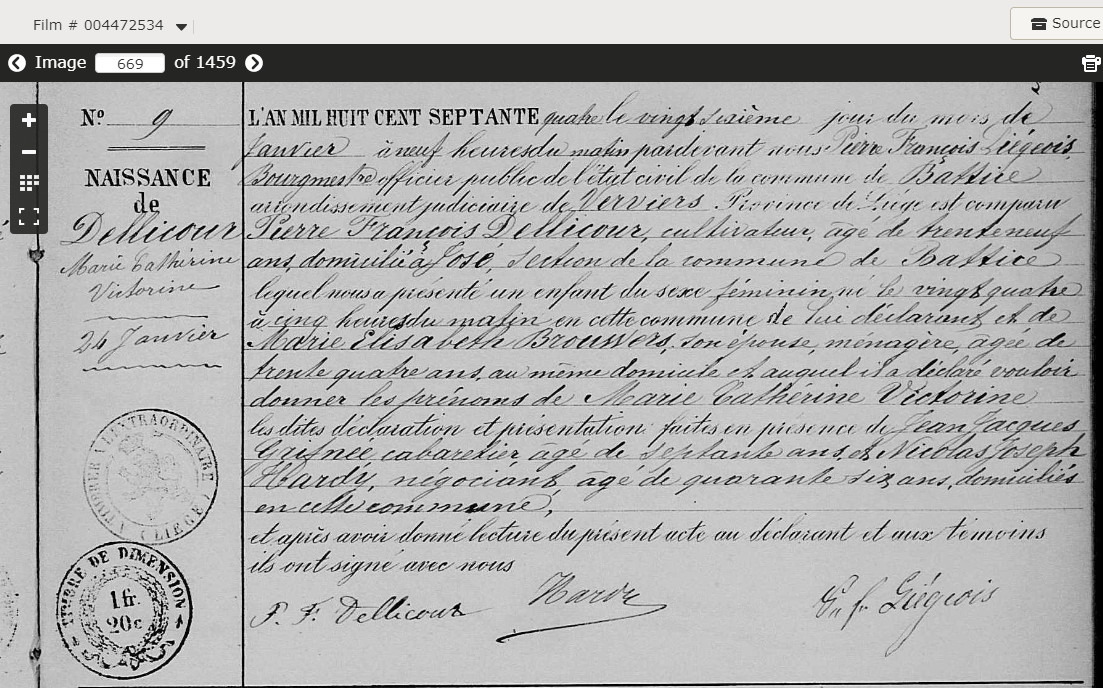 Film # 004472534
Source
Image 669 of 1459
Nº 9
NAISSANCE
de
Dellicour
Marie Cathérine
Victorine
24 Janvier
A L'EXTRAORDINAIRE
LIEGE
TIMBRE DE DIMENSION
1 fr.
20c
L'AN MIL HUIT CENT SEPTANTE quatre le vingt sixième jour du mois de
Janvier à neuf heures du matin pardevant nous Pierre François Liégeois,
Bourgmestre officier public de l'état civil de la commune de Battice
arrondissement judiciaire de Verviers Province de Liége est comparu
Pierre François Dellicour, cultivateur, âgé de trente neuf
ans, domicilié à José, section de la commune de Battice
lequel nous a présenté un enfant du sexe féminin né le vingt quatre
à cinq heures du matin en cette commune de lui déclarant et de
Marie Elisabeth Brouwers, son épouse, ménagère, âgée de
trente quatre ans, au même domicile et auquel il a déclaré vouloir
donner les prénoms de Marie Cathérine Victorine
les dites déclaration et présentation faites en présence de Jean Jacques
cabaretier âgé de septante ans, et Nicolas Joseph
Hardy, négociant, âgé de quarante six ans, domiciliés
en cette commune,
et après avoir donné lecture du présent acte au déclarant et aux témoins
ils ont signé avec nous
P. F. Dellicour
Hardy
Liégeois